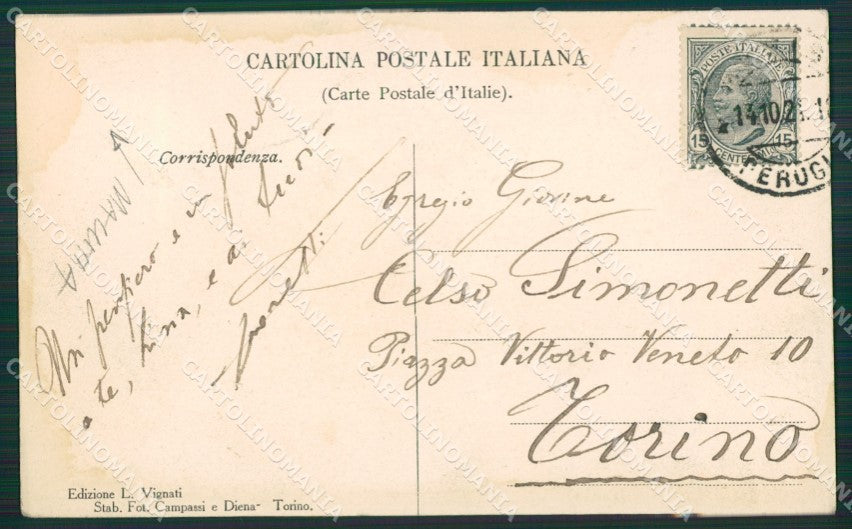 CARTOLINA POSTALE ITALIANA
(Carte Postale d'Italie).
POSTE ITALIANE
15 CENTESIMI 15
14 10 2
PERUGI
Corrispondenza.
Un pensiero e un saluto
a te, Nina, e ai tuoi
Egregio Giovine
Celso Simonetti
Piazza Vittorio Veneto 10
Torino
Edizione L. Vignati
Stab. Fot. Campassi e Diena - Torino.
CARTOLINOMANIA